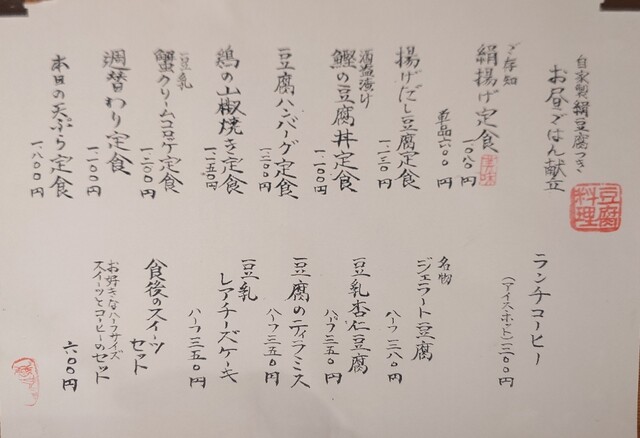 自家製絹豆腐つき
お昼ごはん献立
豆腐料理
ご存知
絹揚げ定食
一、〇八〇円
単品六〇〇円
揚げだし豆腐定食
一、一三〇円
酒盗漬け
鰹の豆腐丼定食
一、一〇〇円
豆腐ハンバーグ定食
一、二〇〇円
鶏の山椒焼き定食
一、一五〇円
豆乳
蟹クリームコロッケ定食
一、二〇〇円
週替わり定食
一、一〇〇円
本日の天ぷら定食
一、八〇〇円
ランチコーヒー
(アイス・ホット)二〇〇円
名物
ジェラート豆腐
ハーフ三八〇円
豆乳杏仁豆腐
ハーフ三五〇円
豆腐のティラミス
ハーフ三五〇円
豆乳
レアチーズケーキ
ハーフ三五〇円
食後のスイーツ
セット
お好きなハーフサイズ
スイーツとコーヒーのセット
六〇〇円